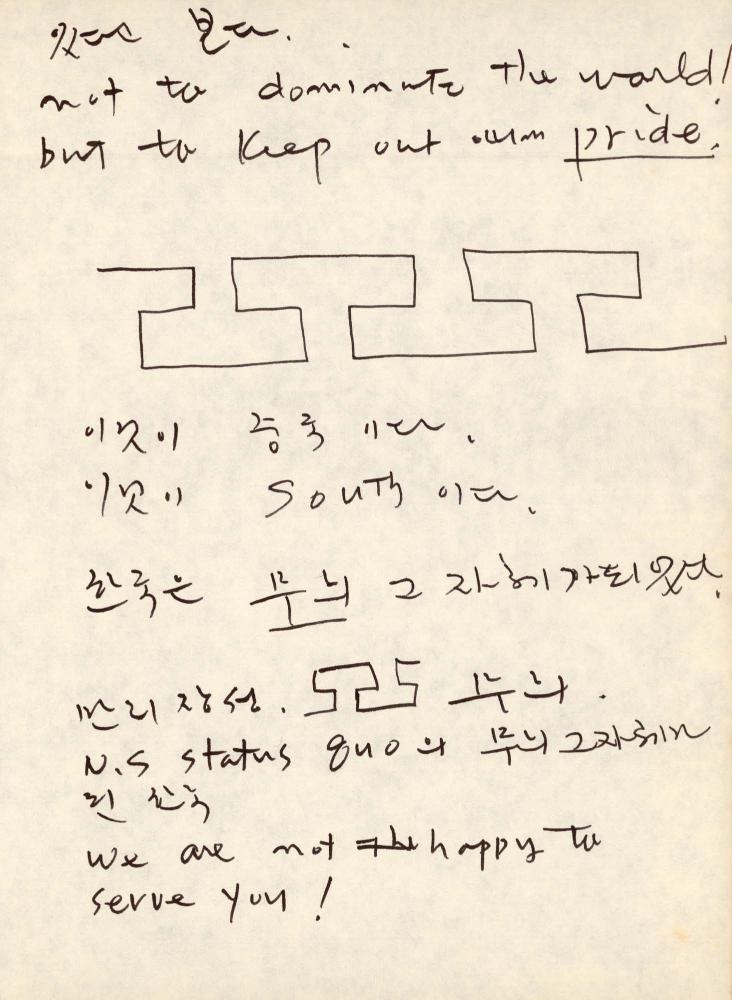 있다고 본다.
not to dominate the world!
but to keep out own pride.
이것이 중국 이다.
이것이 South 이다.
한국은 무늬 그 자체가 되었다.
만리장성. 무늬.
N.S status quo의 무늬 그자체가
된 한국
we are not the happy to
serve you!